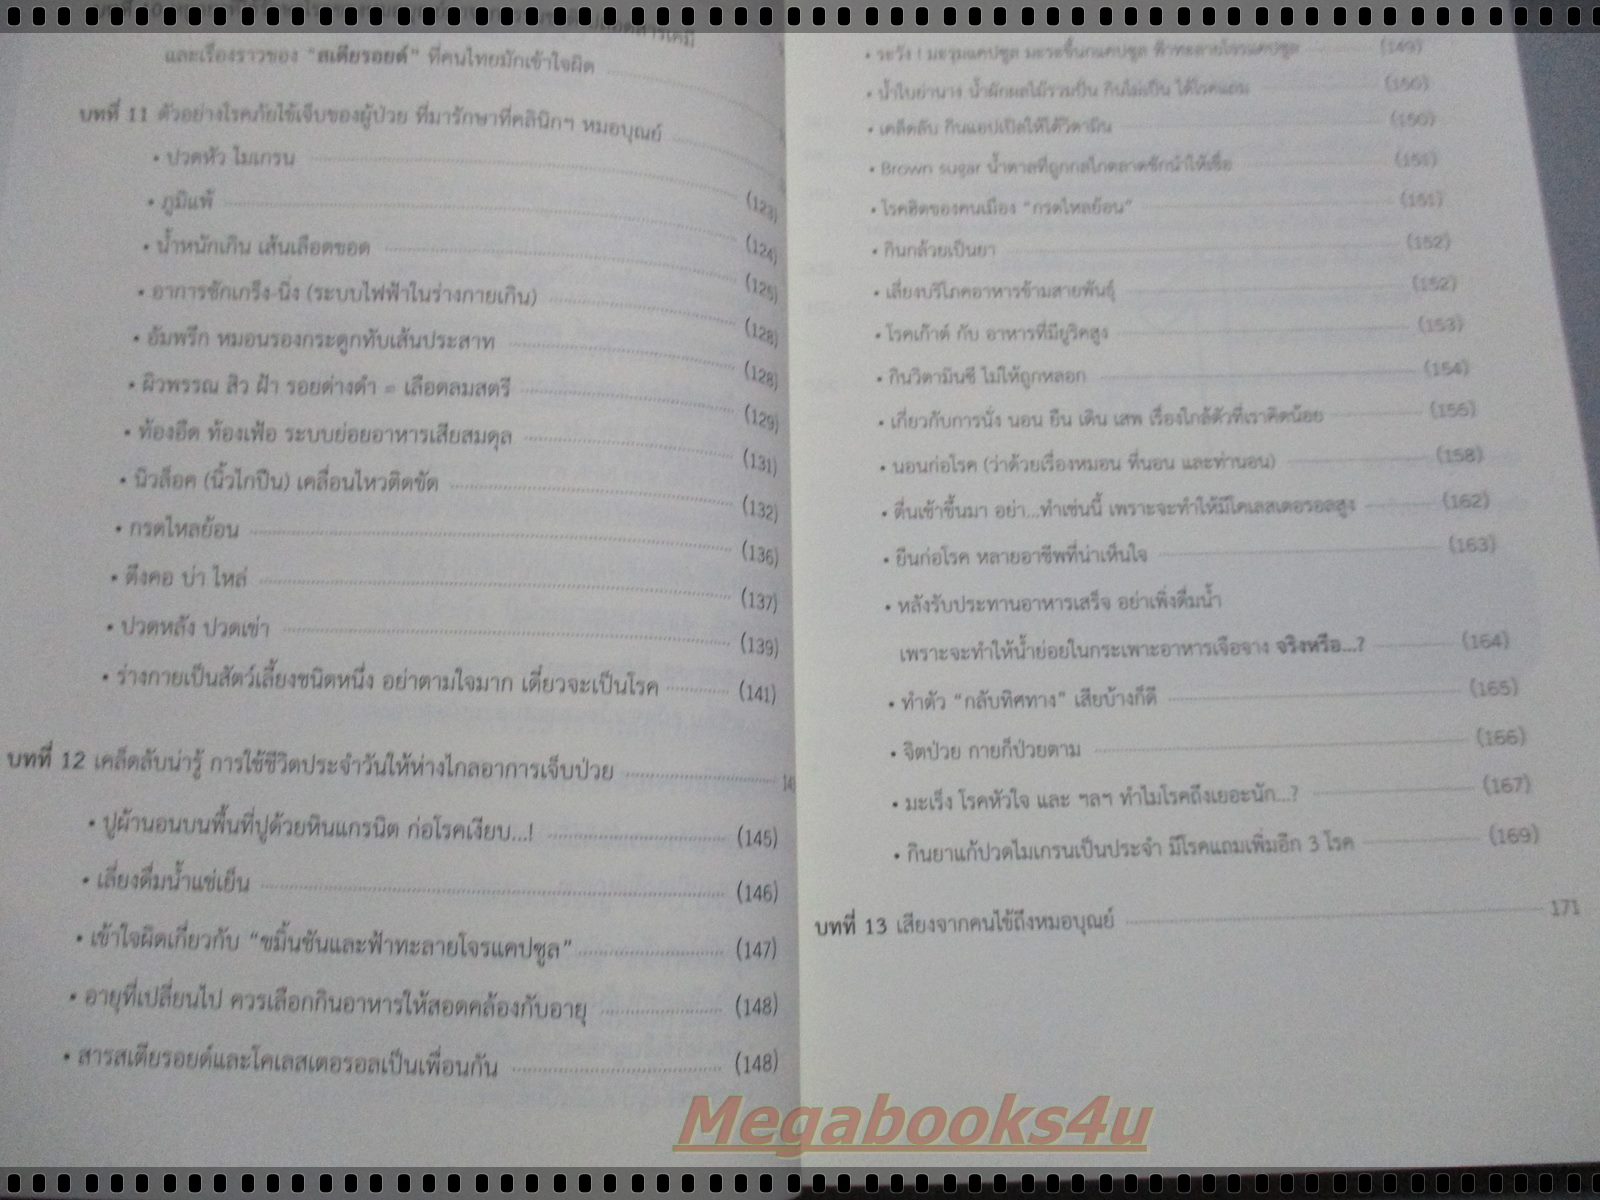 และเรื่องราวของ "สเตียรอยด์" ที่คนไทยมักเข้าใจผิด
บทที่ 11 ตัวอย่างโรคภัยไข้เจ็บของผู้ป่วย ที่มารักษาที่คลินิกฯ หมอบุณย์
• ปวดหัว ไมเกรน (123)
• ภูมิแพ้ (124)
• น้ำหนักเกิน เส้นเลือดขอด (125)
• อาการชักเกร็ง-นิ่ง (ระบบไฟฟ้าในร่างกายเกิน) (128)
• อัมพรึก หมอนรองกระดูกทับเส้นประสาท (128)
• ผิวพรรณ สิว ฝ้า รอยด่างดำ = เลือดลมสตรี (129)
• ท้องอืด ท้องเฟ้อ ระบบย่อยอาหารเสียสมดุล (131)
• นิวล็อค (นิ้วไกปืน) เคลื่อนไหวติดขัด (132)
• กรดไหลย้อน (136)
• ตึงคอ บ่า ไหล่ (137)
• ปวดหลัง ปวดเข่า (139)
• ร่างกายเป็นสัตว์เลี้ยงชนิดหนึ่ง อย่าตามใจมาก เดี๋ยวจะเป็นโรค (141)
บทที่ 12 เคล็ดลับน่ารู้ การใช้ชีวิตประจำวันให้ห่างไกลอาการเจ็บป่วย
• ปูผ้านอนบนพื้นที่ปูด้วยหินแกรนิต ก่อโรคเงียบ...! (145)
• เลี่ยงดื่มน้ำแช่เย็น (146)
• เข้าใจผิดเกี่ยวกับ "ขมิ้นชันและฟ้าทะลายโจรแคปซูล" (147)
• อายุที่เปลี่ยนไป ควรเลือกกินอาหารให้สอดคล้องกับอายุ (148)
• สารสเตียรอยด์และโคเลสเตอรอลเป็นเพื่อนกัน (148)
• ระวัง ! มะรุมแคปซูล มะระขี้นกแคปซูล ฟ้าทะลายโจรแคปซูล (149)
• น้ำใบย่านาง น้ำผักผลไม้รวมปั่น กินไม่เป็น ได้โรคแถม (150)
• เคล็ดลับ กินแอปเปิลให้ได้วิตามิน (150)
• Brown sugar น้ำตาลที่ถูกกลไกตลาดชักนำให้เชื่อ (151)
• โรคฮิตของคนเมือง "กรดไหลย้อน" (151)
• กินกล้วยเป็นยา (152)
• เลี่ยงบริโภคอาหารข้ามสายพันธุ์ (152)
• โรคเก๊าต์ กับ อาหารที่มียูริคสูง (153)
• กินวิตามินซี ไม่ให้ถูกหลอก (154)
• เกี่ยวกับการนั่ง นอน ยืน เดิน เสพ เรื่องใกล้ตัวที่เราคิดน้อย (155)
• นอนก่อโรค (ว่าด้วยเรื่องหมอน ที่นอน และท่านอน) (158)
• ตื่นเช้าขึ้นมา อย่า...ทำเช่นนี้ เพราะจะทำให้มีโคเลสเตอรอลสูง (162)
• ยืนก่อโรค หลายอาชีพที่น่าเห็นใจ (163)
• หลังรับประทานอาหารเสร็จ อย่าเพิ่งดื่มน้ำ
เพราะจะทำให้น้ำย่อยในกระเพาะอาหารเจือจาง จริงหรือ...? (164)
• ทำตัว "กลับทิศทาง" เสียบ้างก็ดี (165)
• จิตป่วย กายก็ป่วยตาม (166)
• มะเร็ง โรคหัวใจ และ ฯลฯ ทำไมโรคถึงเยอะนัก...? (167)
• กินยาแก้ปวดไมเกรนเป็นประจำ มีโรคแถมเพิ่มอีก 3 โรค (169)
บทที่ 13 เสียงจากคนไข้ถึงหมอบุณย์ 171
Megabooks4u